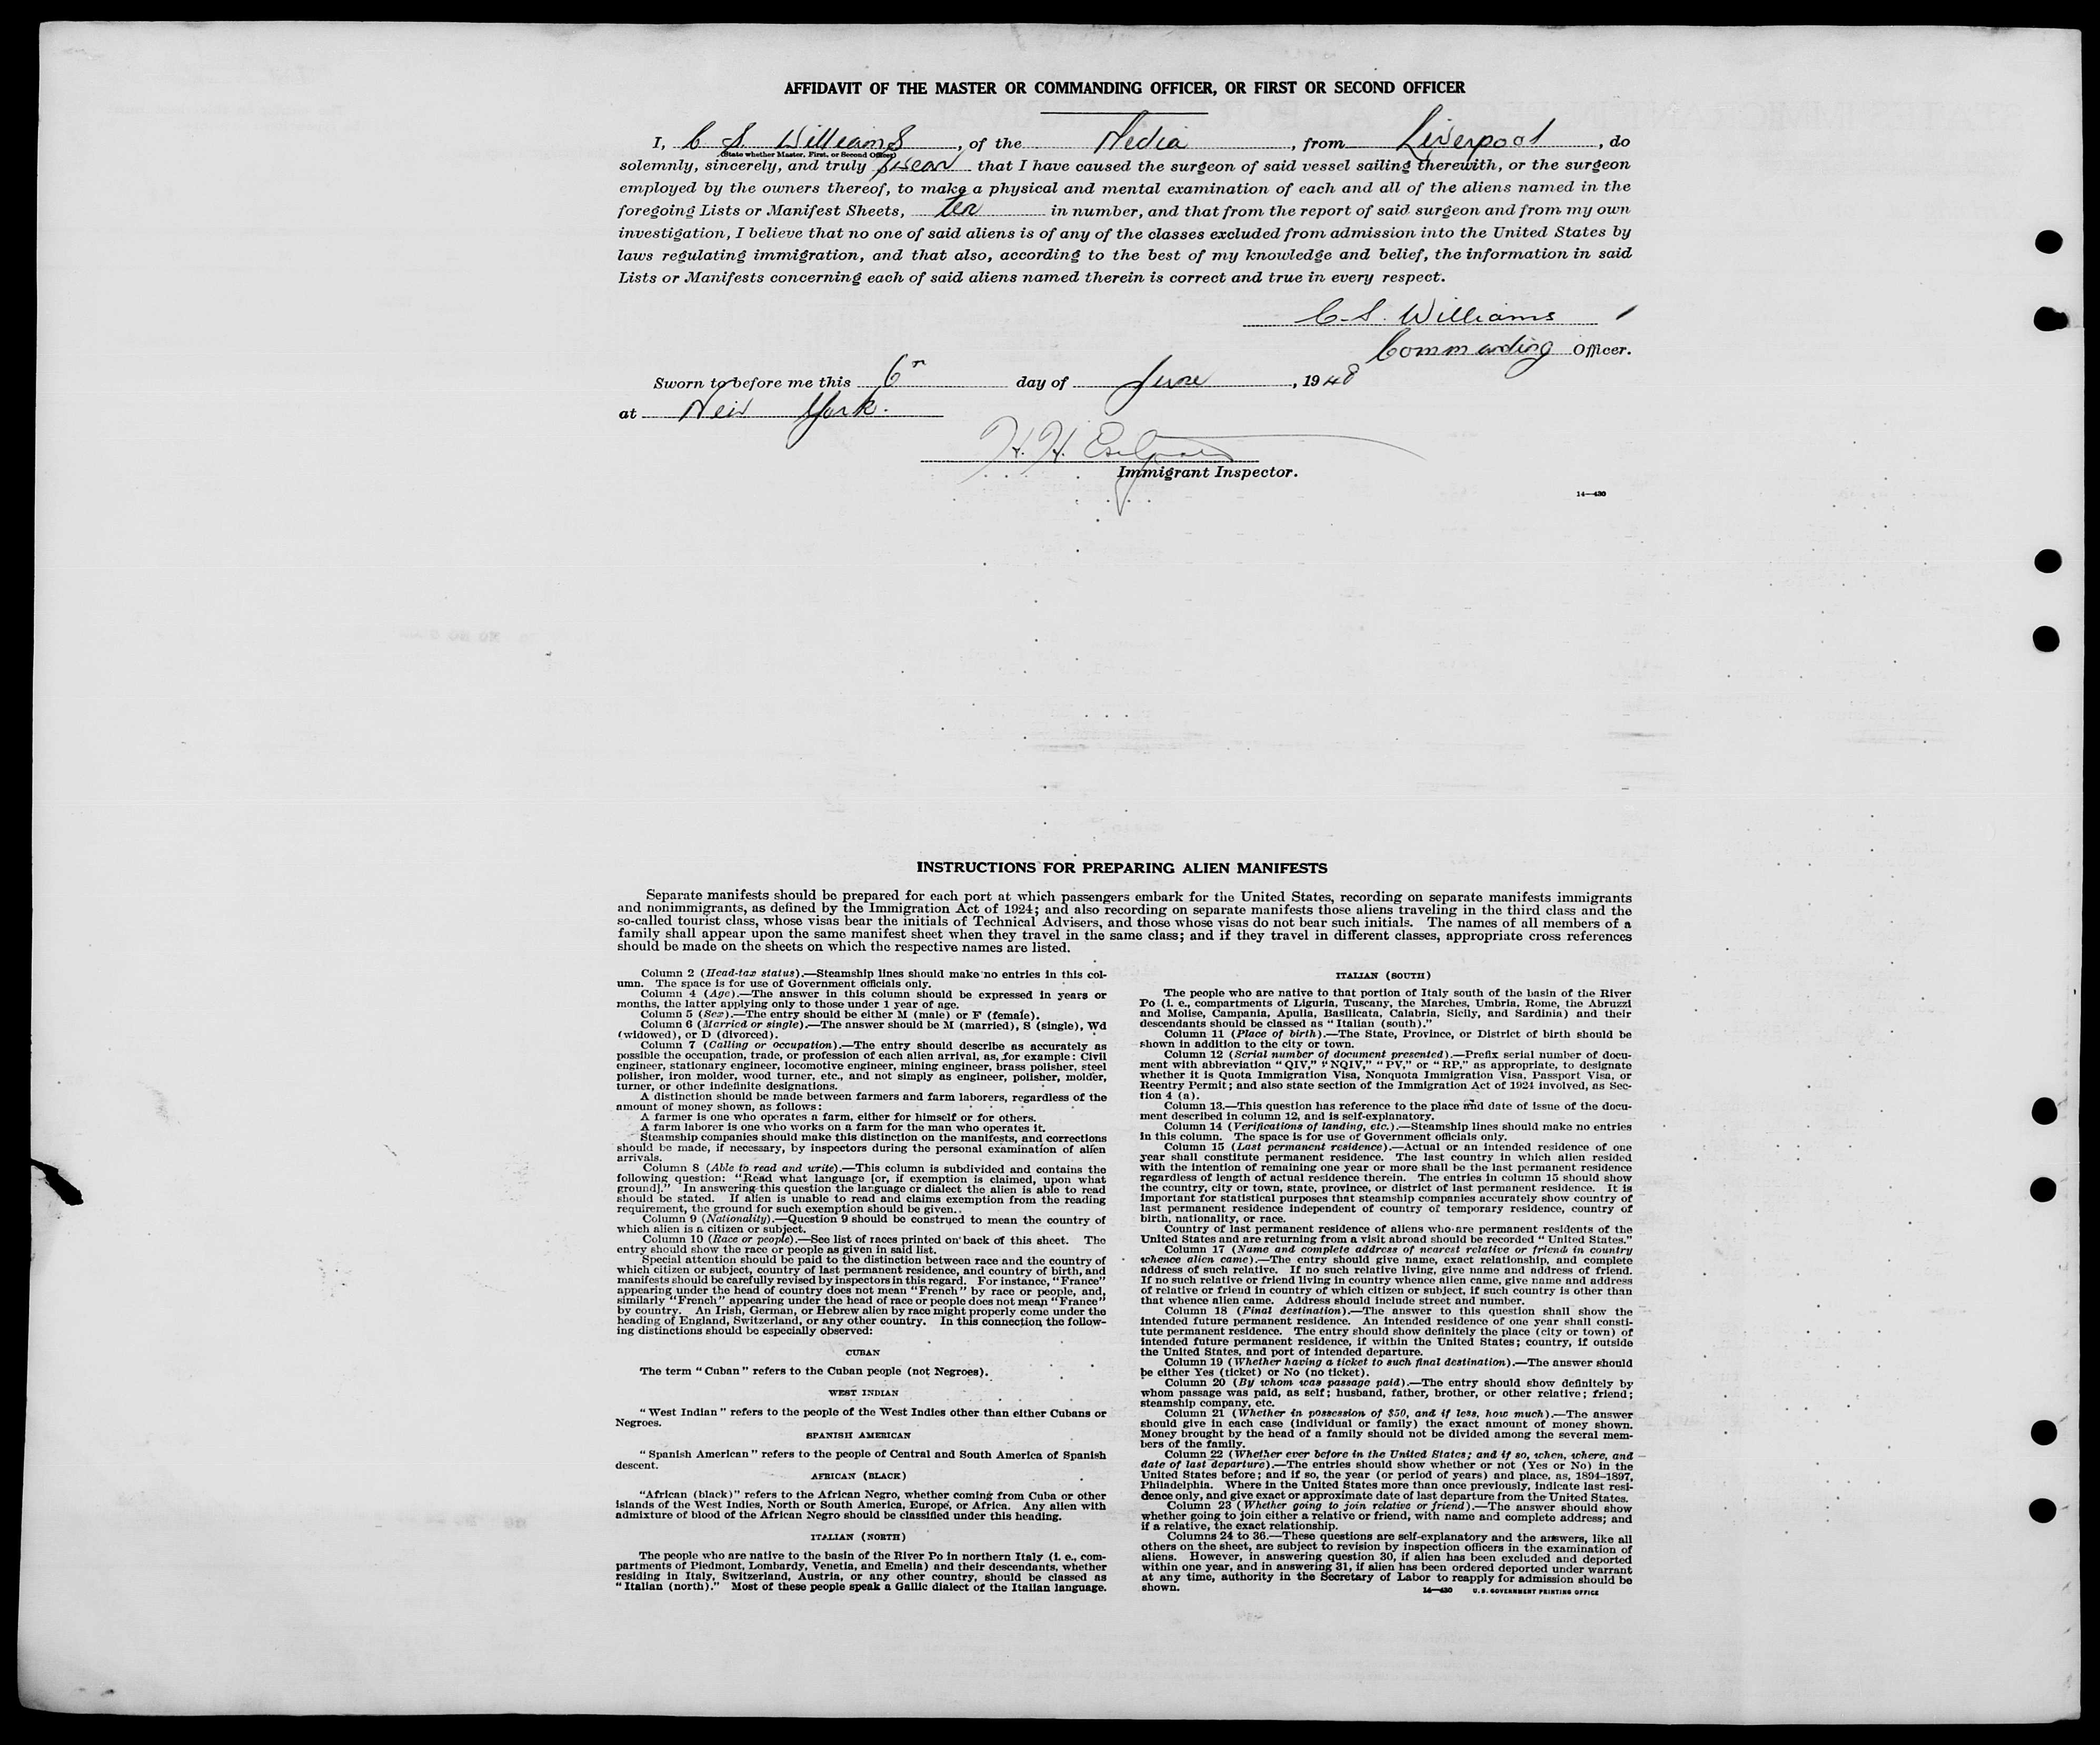 AFFIDAVIT OF THE MASTER OR COMMANDING OFFICER, OR FIRST OR SECOND OFFICER
I, C. S. Williams, of the Media, from Liverpool, do
(State whether Master, First, or Second Officer)
solemnly, sincerely, and truly swear that I have caused the surgeon of said vessel sailing therewith, or the surgeon
employed by the owners thereof, to make a physical and mental examination of each and all of the aliens named in the
foregoing Lists or Manifest Sheets, ten in number, and that from the report of said surgeon and from my own
investigation, I believe that no one of said aliens is of any of the classes excluded from admission into the United States by
laws regulating immigration, and that also, according to the best of my knowledge and belief, the information in said
Lists or Manifests concerning each of said aliens named therein is correct and true in every respect.
C. S. Williams
Commanding Officer.
Sworn to before me this 6 day of June, 1948
at New York.
H. H.
Immigrant Inspector.
14—430
INSTRUCTIONS FOR PREPARING ALIEN MANIFESTS
Separate manifests should be prepared for each port at which passengers embark for the United States, recording on separate manifests immigrants
and nonimmigrants, as defined by the Immigration Act of 1924; and also recording on separate manifests those aliens traveling in the third class and the
so-called tourist class, whose visas bear the initials of Technical Advisers, and those whose visas do not bear such initials. The names of all members of a
family shall appear upon the same manifest sheet when they travel in the same class; and if they travel in different classes, appropriate cross references
should be made on the sheets on which the respective names are listed.
Column 2 (Head-tax status).—Steamship lines should make no entries in this col-
umn. The space is for use of Government officials only.
Column 4 (Age).—The answer in this column should be expressed in years or
months, the latter applying only to those under 1 year of age.
Column 5 (Sex).—The entry should be either M (male) or F (female).
Column 6 (Married or single).—The answer should be M (married), S (single), Wd
(widowed), or D (divorced).
Column 7 (Calling or occupation).—The entry should describe as accurately as
possible the occupation, trade, or profession of each alien arrival, as, for example: Civil
engineer, stationary engineer, locomotive engineer, mining engineer, brass polisher, steel
polisher, iron molder, wood turner, etc., and not simply as engineer, polisher, molder,
turner, or other indefinite designations.
A distinction should be made between farmers and farm laborers, regardless of the
amount of money shown, as follows:
A farmer is one who operates a farm, either for himself or for others.
A farm laborer is one who works on a farm for the man who operates it.
Steamship companies should make this distinction on the manifests, and corrections
should be made, if necessary, by inspectors during the personal examination of alien
arrivals.
Column 8 (Able to read and write).—This column is subdivided and contains the
following question: "Read what language [or, if exemption is claimed, upon what
ground]." In answering this question the language or dialect the alien is able to read
should be stated. If alien is unable to read and claims exemption from the reading
requirement, the ground for such exemption should be given.
Column 9 (Nationality).—Question 9 should be construed to mean the country of
which alien is a citizen or subject.
Column 10 (Race or people).—See list of races printed on back of this sheet. The
entry should show the race or people as given in said list.
Special attention should be paid to the distinction between race and the country of
which citizen or subject, country of last permanent residence, and country of birth, and
manifests should be carefully revised by inspectors in this regard. For instance, "France"
appearing under the head of country does not mean "French" by race or people, and,
similarly "French" appearing under the head of race or people does not mean "France"
by country. An Irish, German, or Hebrew alien by race might properly come under the
heading of England, Switzerland, or any other country. In this connection the follow-
ing distinctions should be especially observed:
CUBAN
The term "Cuban" refers to the Cuban people (not Negroes).
WEST INDIAN
"West Indian" refers to the people of the West Indies other than either Cubans or
Negroes.
SPANISH AMERICAN
"Spanish American" refers to the people of Central and South America of Spanish
descent.
AFRICAN (BLACK)
"African (black)" refers to the African Negro, whether coming from Cuba or other
islands of the West Indies, North or South America, Europe, or Africa. Any alien with
admixture of blood of the African Negro should be classified under this heading.
ITALIAN (NORTH)
The people who are native to the basin of the River Po in northern Italy (i. e., com-
partments of Piedmont, Lombardy, Venetia, and Emelia) and their descendants, whether
residing in Italy, Switzerland, Austria, or any other country, should be classed as
"Italian (north)." Most of these people speak a Gallic dialect of the Italian language.
ITALIAN (SOUTH)
The people who are native to that portion of Italy south of the basin of the River
Po (i. e., compartments of Liguria, Tuscany, the Marches, Umbria, Rome, the Abruzzi
and Molise, Campania, Apulia, Basilicata, Calabria, Sicily, and Sardinia) and their
descendants should be classed as "Italian (south)."
Column 11 (Place of birth).—The State, Province, or District of birth should be
shown in addition to the city or town.
Column 12 (Serial number of document presented).—Prefix serial number of docu-
ment with abbreviation "QIV," "NQIV," "PV," or "RP," as appropriate, to designate
whether it is Quota Immigration Visa, Nonquota Immigration Visa, Passport Visa, or
Reentry Permit; and also state section of the Immigration Act of 1924 involved, as Sec-
tion 4 (a).
Column 13.—This question has reference to the place and date of issue of the docu-
ment described in column 12, and is self-explanatory.
Column 14 (Verifications of landing, etc.).—Steamship lines should make no entries
in this column. The space is for use of Government officials only.
Column 15 (Last permanent residence).—Actual or an intended residence of one
year shall constitute permanent residence. The last country in which alien resided
with the intention of remaining one year or more shall be the last permanent residence
regardless of length of actual residence therein. The entries in column 15 should show
the country, city or town, state, province, or district of last permanent residence. It is
important for statistical purposes that steamship companies accurately show country of
last permanent residence independent of country of temporary residence, country of
birth, nationality, or race.
Country of last permanent residence of aliens who are permanent residents of the
United States and are returning from a visit abroad should be recorded "United States."
Column 17 (Name and complete address of nearest relative or friend in country
whence alien came).—The entry should give name, exact relationship, and complete
address of such relative. If no such relative living, give name and address of friend.
If no such relative or friend living in country whence alien came, give name and address
of relative or friend in country of which citizen or subject, if such country is other than
that whence alien came. Address should include street and number.
Column 18 (Final destination).—The answer to this question shall show the
intended future permanent residence. An intended residence of one year shall consti-
tute permanent residence. The entry should show definitely the place (city or town) of
intended future permanent residence, if within the United States; country, if outside
the United States, and port of intended departure.
Column 19 (Whether having a ticket to such final destination).—The answer should
be either Yes (ticket) or No (no ticket).
Column 20 (By whom was passage paid).—The entry should show definitely by
whom passage was paid, as self; husband, father, brother, or other relative; friend;
steamship company, etc.
Column 21 (Whether in possession of $50, and if less, how much).—The answer
should give in each case (individual or family) the exact amount of money shown.
Money brought by the head of a family should not be divided among the several mem-
bers of the family.
Column 22 (Whether ever before in the United States; and if so, when, where, and
date of last departure).—The entries should show whether or not (Yes or No) in the
United States before; and if so, the year (or period of years) and place, as, 1894–1897,
Philadelphia. Where in the United States more than once previously, indicate last resi-
dence only, and give exact or approximate date of last departure from the United States.
Column 23 (Whether going to join relative or friend).—The answer should show
whether going to join either a relative or friend, with name and complete address; and
if a relative, the exact relationship.
Columns 24 to 36.—These questions are self-explanatory and the answers, like all
others on the sheet, are subject to revision by inspection officers in the examination of
aliens. However, in answering question 30, if alien has been excluded and deported
within one year, and in answering 31, if alien has been ordered deported under warrant
at any time, authority in the Secretary of Labor to reapply for admission should be
shown.
14—430 U. S. GOVERNMENT PRINTING OFFICE